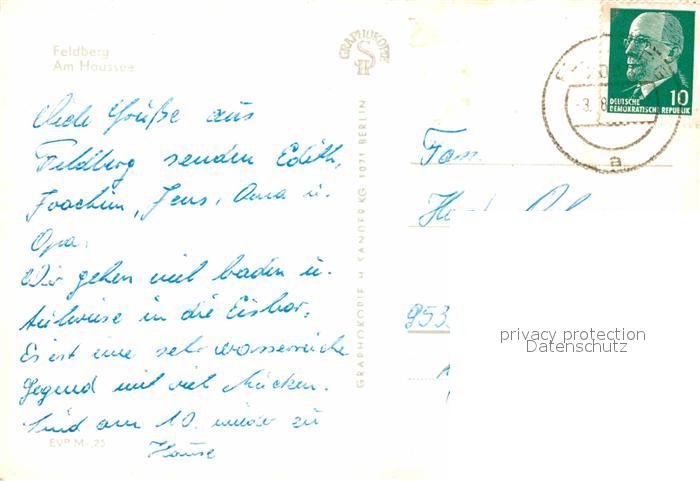 Feldberg
Am Haussee
Viele Grüße aus
Feldberg senden Edith,
Joachim, Jens, Oma u.
Opa.
Wir gehen viel baden u.
in die Eisbar.
Es ist eine sehr wasserreiche
Gegend mit viel Mücken.
Sind am 10. wieder zu
Hause
EVP M -,25
GRAPHOKOPIE
GRAPHOKOPIE H. SANDER KG. 1071 BERLIN
10
DEUTSCHE
DEMOKRATISCHE REPUBLIK
-3. 8
a
Fam.
953
privacy protection
Datenschutz